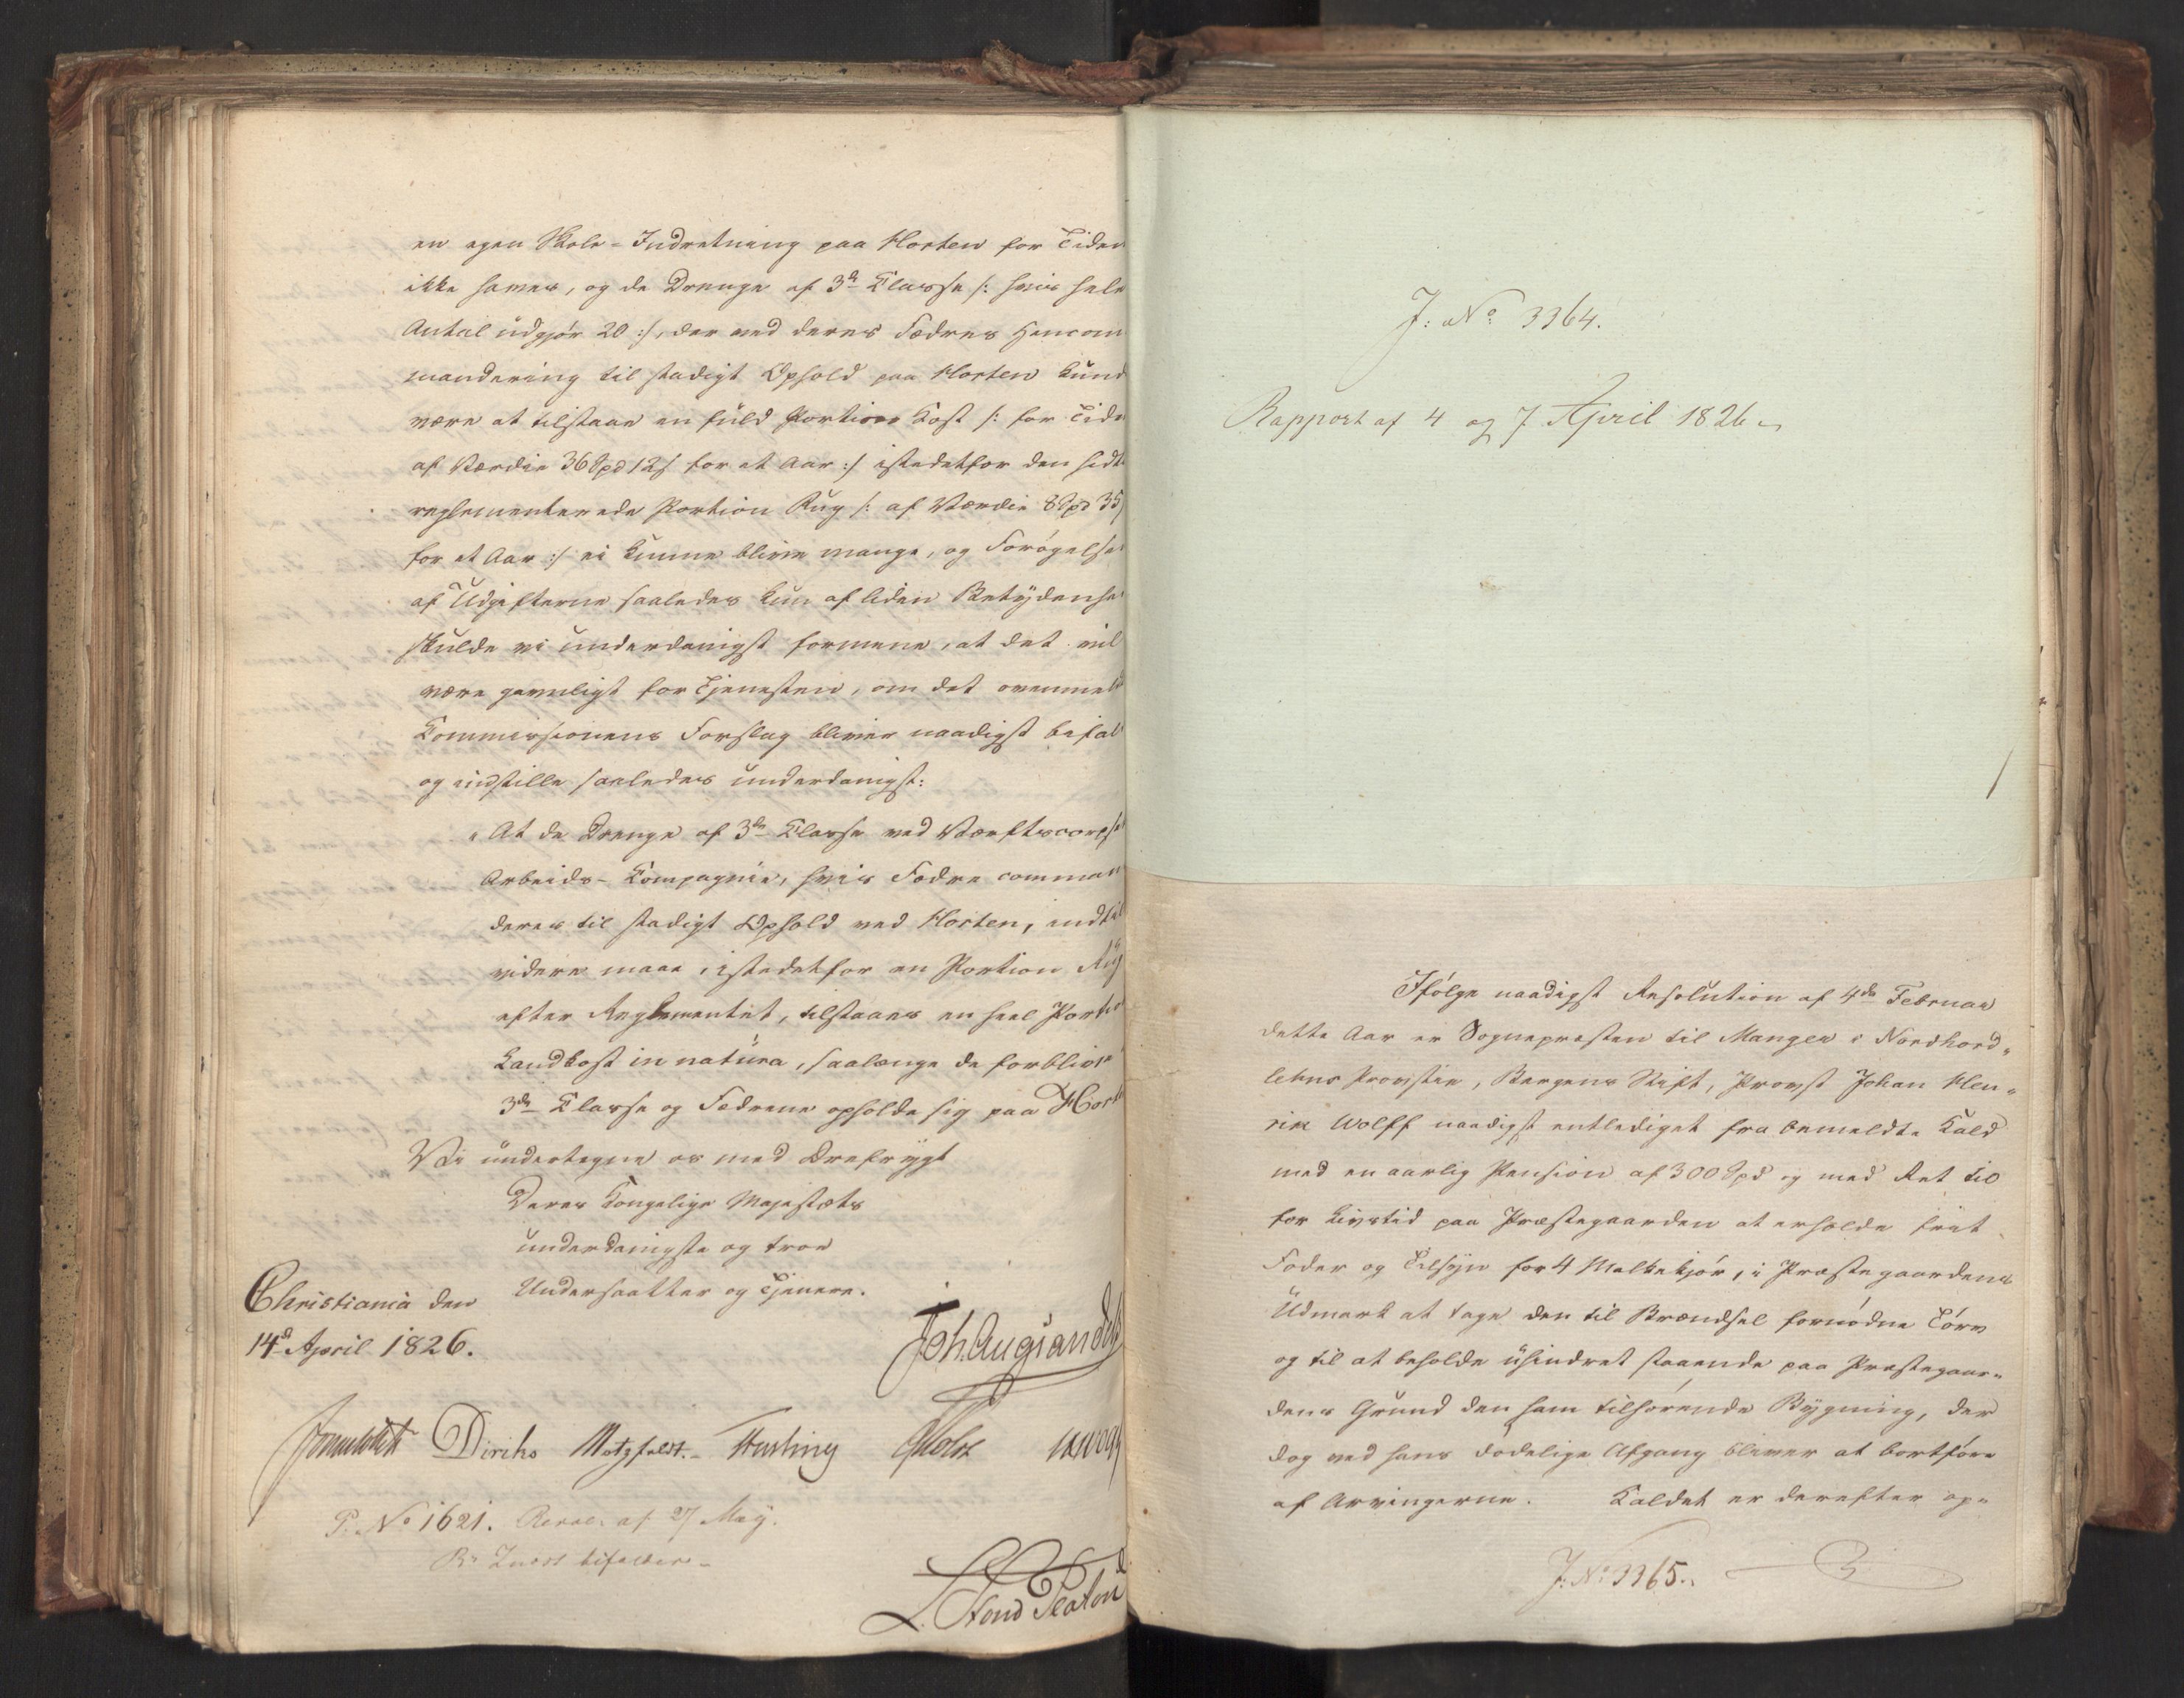 en egen Skole-Indretning paa Horten for Tiden
ikke haves, og de Drenge af 3d Classe /: hvis hele
Antal udgjør 20 :/, der ved deres Fædres Hencom
mandering til stadigt Ophold paa Horten kund
være at tilstaae en fuld Portions Kost /: for Tide
af Værdie 36 Spd 12 s for et Aar :/ istedetfor den hidt
reglementerede Portion Rug /: af Værdie 8 Spd 35
for et Aar :/ ei kunne blive mange, og Forøgelse
af Udgifterne saaledes kun af liden Betydenhe
skulde vi underdanigst formene, at det vil
være gavnligt for Tjenesten, om det ovenmel
Commissionens Forslag bliver naadigst bifal
og indstille saaledes underdanigst:
"At de Drenge af 3de Classe ved Værftscorpse
Arbeids-Compagnie, hvis Fædre comman
deres til stadigt Ophold ved Horten, indtil
videre maae, istedetfor en Portion Rug
efter Reglementet, tilstaaes en heel Porti
Landkost in natura, saalænge de forblive
3de Classe og Fædrene opholde sig paa Hort
Vi undertegne os med Ærefrygt
Deres Kongelige Majestæts
underdanigste og troe
Undersaatter og Tjenere.
Christiania den
14d April 1826.
Joh. Aug Sandel
Sommerfeldt Diriks Motzfeldt. Fasting Holst
P. No 1621. Resol. af 27 May.
bifaldes
J: No 3364.
Rapport af 4 og 7 April 1826
Ifølge naadigst Resolution af 4de Februar
dette Aar er Sognepræsten til Manger i Nordhord„
lehns Provstie, Bergens Stift, Provst Johan Hen„
rik Wolff naadigst entlediget fra bemeldte Kald
med en aarlig Pension af 300 Spd og med Ret til
for Livstid paa Præstegaarden at erholde friet
Foder og Tilsyn for 4 Malkekjør, i Præstegaardens
Udmark at tage den til Brændsel fornødne Törv
og til at beholde uhindret staaende paa Præstegaar„
dens Grund den ham tilhørende Bygning, der
dog ved hans dødelige Afgang bliver at bortføre
af Arvingerne. Kaldet er derefter op„
J: No 3365.